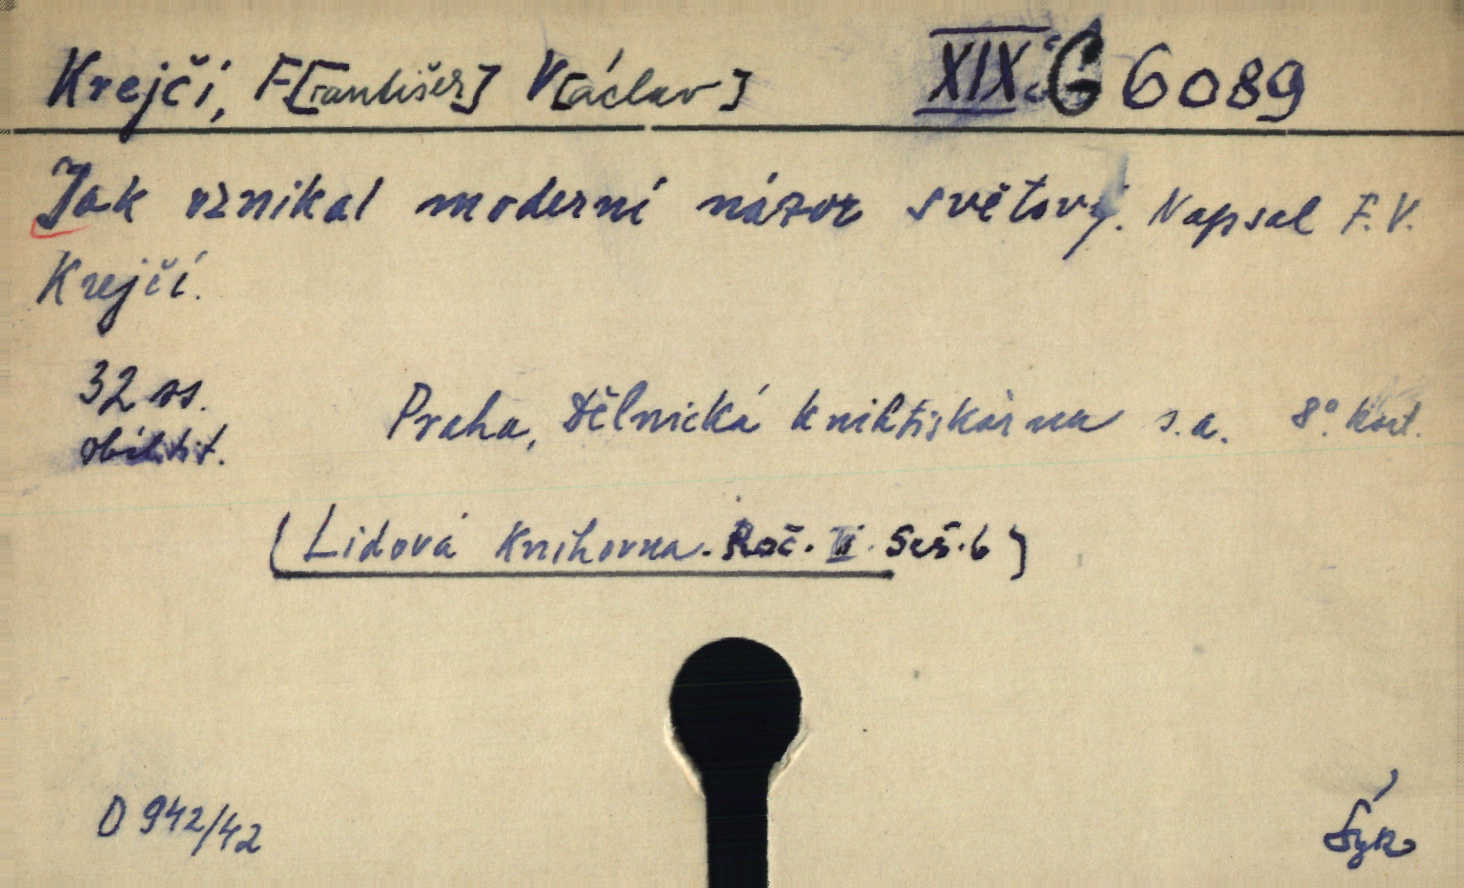 Krejčí, F[rantišek] V[áclav] XIX G 6089
Jak vznikal moderní názor světový. Napsal F. V.
Krejčí.
32 ss. Praha, Dělnická knihtiskárna s.a. 8° kart.
obál. tit.
(Lidová knihovna. Roč. II. Seš. 6)
D 942/42